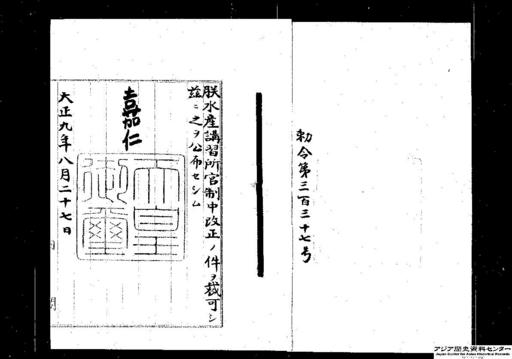 勅令第三百三十七号
朕水産講習所官制中改正ノ件ヲ裁可シ
茲ニ之ヲ公布セシム
嘉仁
天皇御璽
大正九年八月二十七日
内閣
アジア歴史資料センター
Japan Center for Asian Historical Records